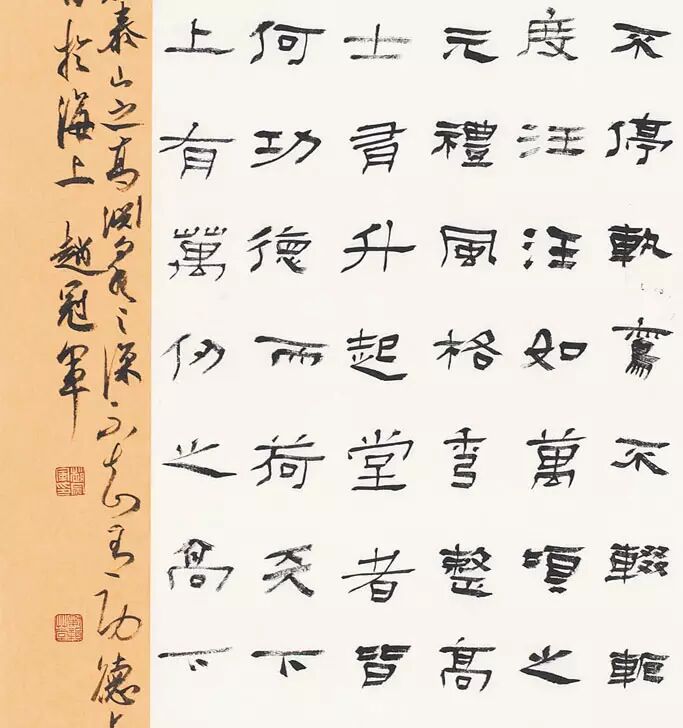 不停軌鸞不輟軛
度汪汪如萬頃之
元禮風格秀整高
士有升起堂者皆
何功德而荷天下
上有萬仞之高下
泰山之高淵泉之深不知有功德
於海上 趙冠軍